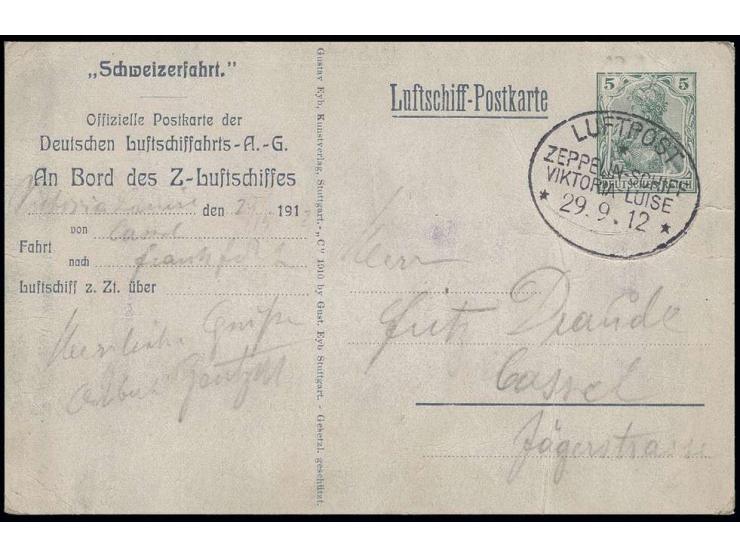 „Schweizerfahrt.“
Offizielle Postkarte der
Deutschen Luftschiffahrts-A.-G.
An Bord des Z-Luftschiffes
Viktoria Luise den 29. 191
von Cassel
Fahrt
nach Frankfurt
Luftschiff z. Zt. über
Herzliche Grüße
Gustav Eyb, Kunstverlag, Stuttgart.-„C“ 1910 by Gust. Eyb Stuttgart. - Gesetzl. geschützt.
Luftschiff-Postkarte
5 5
DEUTSCHES REICH
LUFTPOST
ZEPPELIN-SCHIFF
VIKTORIA-LUISE
* 29.9.12 *
Herrn
Fritz
Cassel
Jägerstrasse